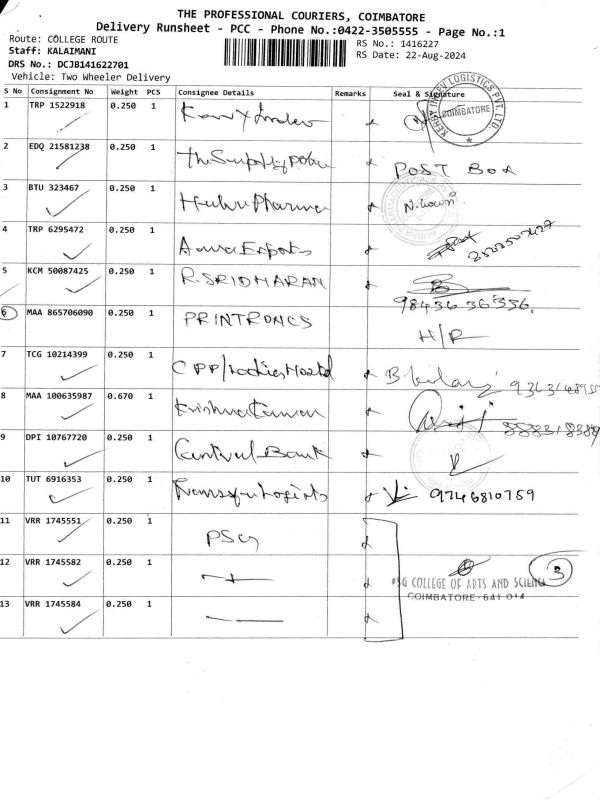 THE PROFESSIONAL COURIERS, COIMBATORE
Delivery Runsheet - PCC - Phone No.:0422-3505555 - Page No.:1
Route: COLLEGE ROUTE
RS No.: 1416227
Staff: KALAIMANI
RS Date: 22-Aug-2024
DRS No.: DCJB141622701
Vehicle: Two Wheeler Delivery
S No Consignment No Weight PCS Consignee Details Remarks Seal & Signature
1 TRP 1522918 0.250 1
COIMBATORE
2 EDQ 21581238 0.250 1 POST BOX
3 BTU 323467 0.250 1 Pharma
4 TRP 6295472 0.250 1 Exports
5 KCM 50087425 0.250 1 R.SRIDHARAN
9843636356.
6 MAA 865706090 0.250 1 PRINTRONICS H/R
7 TCG 10214399 0.250 1
8 MAA 100635987 0.670 1
9 DPI 10767720 0.250 1 Central Bank
10 TUT 6916353 0.250 1 9746810759
11 VRR 1745551 0.250 1 PSG
12 VRR 1745582 0.250 1
3
PSG COLLEGE OF ARTS AND SCIENCE
COIMBATORE-641 014
13 VRR 1745584 0.250 1